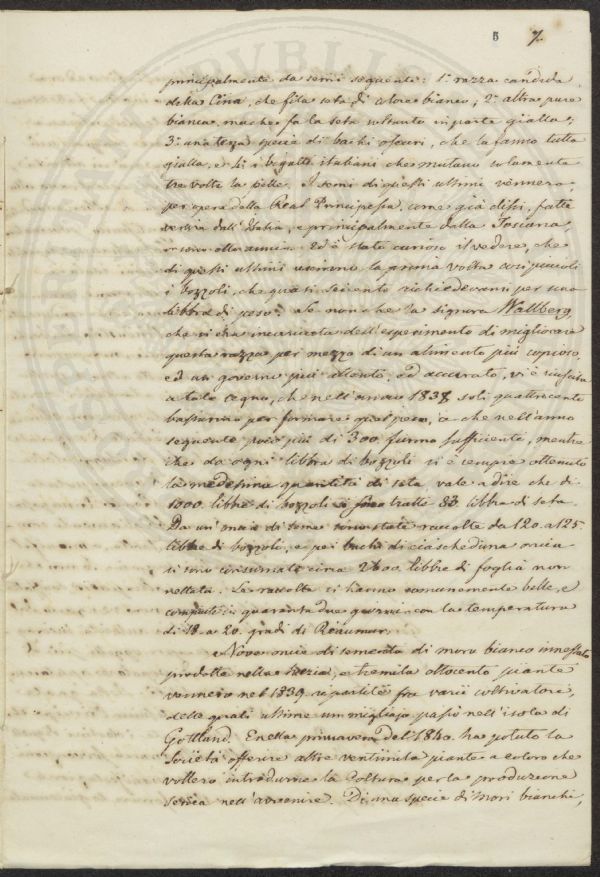 5 7.
principalmente da semi seguenti: 1º razza candida
della Cina, che fila seta di colore bianco, 2º altra pure
bianca, ma che fa la seta soltanto in parte gialla,
3º una terza specie di bachi oscuri, che la fanno tutta
gialla, e 4º i bigatti italiani che mutano solamente
tre volte la pelle. I semi di questi ultimi vennero,
per opera della Real Principessa, come già dissi, fatti
venire dall'Italia, e principalmente dalla Toscana,
or sono otto anni. Ed è stato curioso il vedere, che
di questi ultimi vennero la prima volta così piccioli
i bozzoli, che quasi seicento richiedevansi per una
libbra di peso. Se non che la signora Wallberg,
che si era incaricata dell'esperimento di migliorare
questa razza per mezzo di un alimento più copioso,
ed un governo più attento, ed accurato, vi è riuscita
a tale segno, che nell'anno 1838 soli quattrocento
bastarono per formare quel peso, e che nell'anno
seguente poco più di 300 furono sufficienti, mentre
che da ogni libbra di bozzoli si è sempre ottenuto
la medesima quantità di seta, vale a dire che di
1000 libbre di bozzoli si sono tratte 83 libbre di seta.
Da un'oncia di seme sono state raccolte da 120 a 125
libbre di bozzoli, e pei bachi di ciascheduna oncia
si sono consumate circa 2600 libbre di foglia non
nettata. Le raccolte si hanno comunemente belle, e
compiute in quaranta due giorni con la temperatura
di 18 a 20 gradi di Réaumur.
Nove oncie di semenza di moro bianco innestato
prodotte nella Svezia, e tremila ottocento piante
vennero nel 1839 ripartite fra varii coltivatori,
delle quali ultime un migliajo passò nell'isola di
Gottland. E nella primavera del 1840 ha potuto la
Società offerire altre ventimila piante a coloro che
vollero introdurne la coltura per la produzione
serica nell'avvenire. Di una specie di mori bianchi,